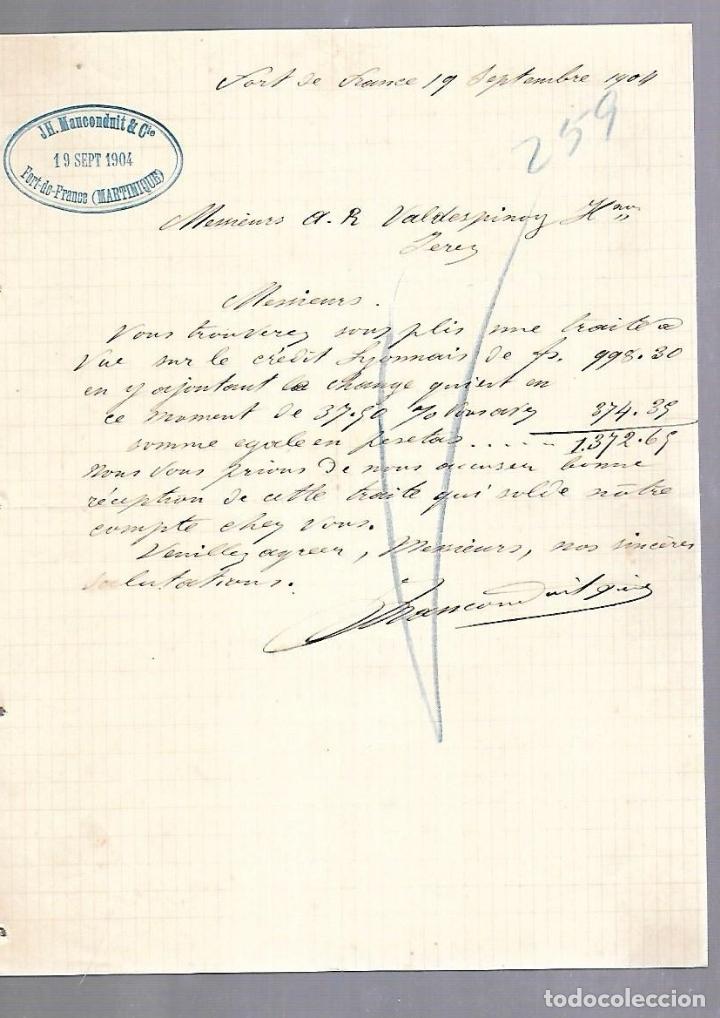 Fort de France 19 Septembre 1904
JH. Manconduit & Cie
19 SEPT 1904
Fort-de-France (MARTINIQUE)
259
Messieurs A. R Valdespino y Hnos
Jerez
Messieurs.
Vous trouverez sous plis une traite a
Vue sur le crédit Lyonnais de fs. 998.30
en y ajoutant le change qui est en
ce moment de 37.50 % 374.39
somme egale en pesetas ..... 1.372.69
Nous Vous prions de nous accuser bonne
réception de cette traite qui solde nôtre
compte chez Vous.
Veuillez agreer, Messieurs, nos sincères
salutations.
JHManconduit & Cie
todocoleccion
todocoleccion.net